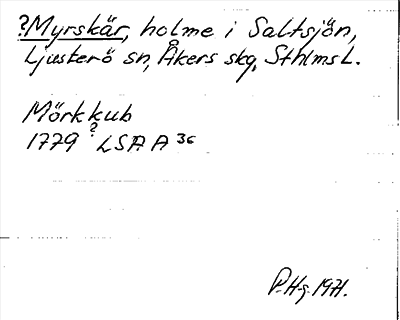 ?Myrskär, holme i Saltsjön,
Ljusterö sn, Åkers skg, Sthlms L.
Mörkkub
1779 ? LSA A 36
P. H-g. 1971.